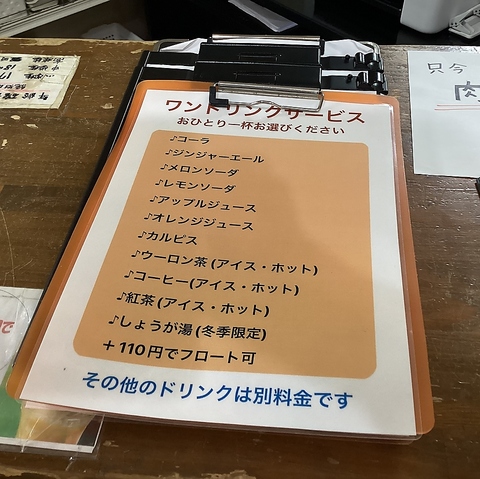 ワンドリンクサービス
おひとり一杯お選びください
♪コーラ
♪ジンジャーエール
♪メロンソーダ
♪レモンソーダ
♪アップルジュース
♪オレンジジュース
♪カルピス
♪ウーロン茶(アイス・ホット)
♪コーヒー(アイス・ホット)
♪紅茶(アイス・ホット)
♪しょうが湯(冬季限定)
+110円でフロート可
その他のドリンクは別料金です
只今
肉